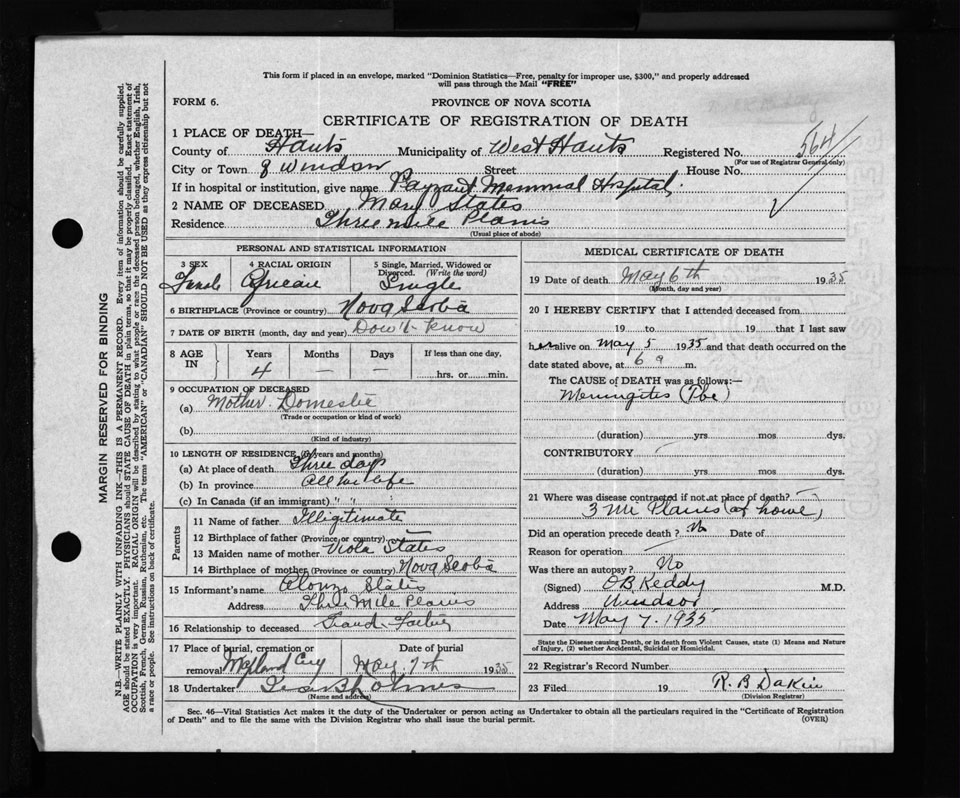 This form if placed in an envelope, marked "Dominion Statistics—Free, penalty for improper use, $300," and properly addressed
will pass through the Mail "FREE"
FORM 6.
PROVINCE OF NOVA SCOTIA
CERTIFICATE OF REGISTRATION OF DEATH
1 PLACE OF DEATH—
County of Hants Municipality of West Hants Registered No. 564
(For use of Registrar General only)
City or Town of Windsor Street House No.
If in hospital or institution, give name Payzant Memorial Hospital.
2 NAME OF DECEASED Mary States
Residence Three mile Plains
(Usual place of abode)
PERSONAL AND STATISTICAL INFORMATION
3 SEX 4 RACIAL ORIGIN 5 Single, Married, Widowed or
Divorced. (Write the word)
Female African Single
6 BIRTHPLACE (Province or country) Nova Scotia
7 DATE OF BIRTH (month, day and year) Don't know
8 AGE IN Years Months Days If less than one day,
4 — — hrs. or min.
9 OCCUPATION OF DECEASED
(a) Mother Domestic
(Trade or occupation or kind of work)
(b)
(Kind of industry)
10 LENGTH OF RESIDENCE (in years and months)
(a) At place of death Three days
(b) In province All her life
(c) In Canada (if an immigrant) " "
Parents
11 Name of father Illigitimate
12 Birthplace of father (Province or country)
13 Maiden name of mother Viola States
14 Birthplace of mother (Province or country) Nova Scotia
15 Informant's name Alonzo States
Address Three Mile Plains
16 Relationship to deceased Grand Father
17 Place of burial, cremation or Date of burial
removal May 7th 1935
18 Undertaker
(Name and address)
MEDICAL CERTIFICATE OF DEATH
19 Date of death May 6th 1935
(Month, day and year)
20 I HEREBY CERTIFY that I attended deceased from
19 to 19 that I last saw
her alive on May 5 1935 and that death occurred on the
date stated above, at 6 a m.
The CAUSE of DEATH was as follows:—
Meningites (Tbc)
(duration) yrs. mos dys.
CONTRIBUTORY
(duration) yrs. mos. dys.
21 Where was disease contracted if not at place of death?
3 Mi Plains (at home)
Did an operation precede death? No Date of
Reason for operation
Was there an autopsy? No
(Signed) O B Keddy M.D.
Address Windsor
Date May 7. 1935
State the Disease causing Death, or in death from Violent Causes, state (1) Means and Nature
of Injury, (2) whether Accidental, Suicidal or Homicidal.
22 Registrar's Record Number
23 Filed 19 R. B Dakin
(Division Registrar)
Sec. 46—Vital Statistics Act makes it the duty of the Undertaker or person acting as Undertaker to obtain all the particulars required in the "Certificate of Registration
of Death" and to file the same with the Division Registrar who shall issue the burial permit.
(OVER)
MARGIN RESERVED FOR BINDING
N.B.—WRITE PLAINLY WITH UNFADING INK—THIS IS A PERMANENT RECORD. Every item of information should be carefully supplied.
AGE should be stated EXACTLY. PHYSICIANS should STATE CAUSE OF DEATH in plain terms, so that it may be properly classified. Exact statement of
OCCUPATION is very important. RACIAL ORIGIN will be described by stating to what people or race the deceased person belonged, whether English, Irish,
Scottish, French, German, Russian, Ruthenian, etc. The terms "AMERICAN" or "CANADIAN" SHOULD NOT BE USED as they express citizenship but not
a race or people. See instructions on back of certificate.